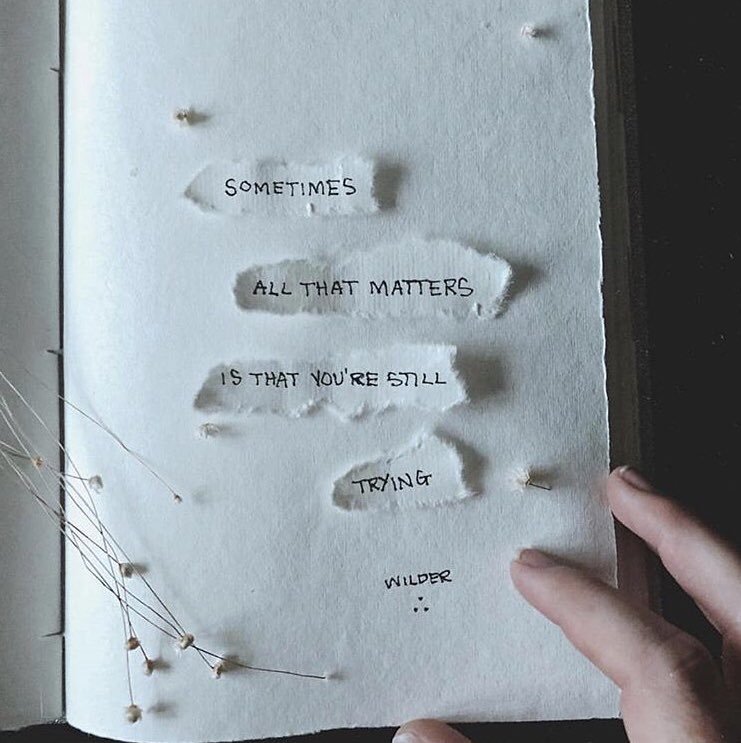 SOMETIMES
ALL THAT MATTERS
IS THAT YOU'RE STILL
TRYING
WILDER